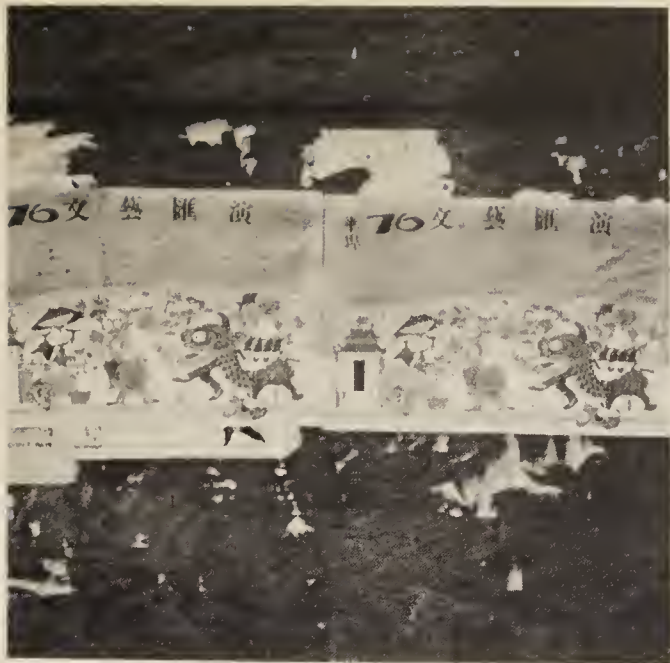 76 文藝匯演
76 文藝匯演